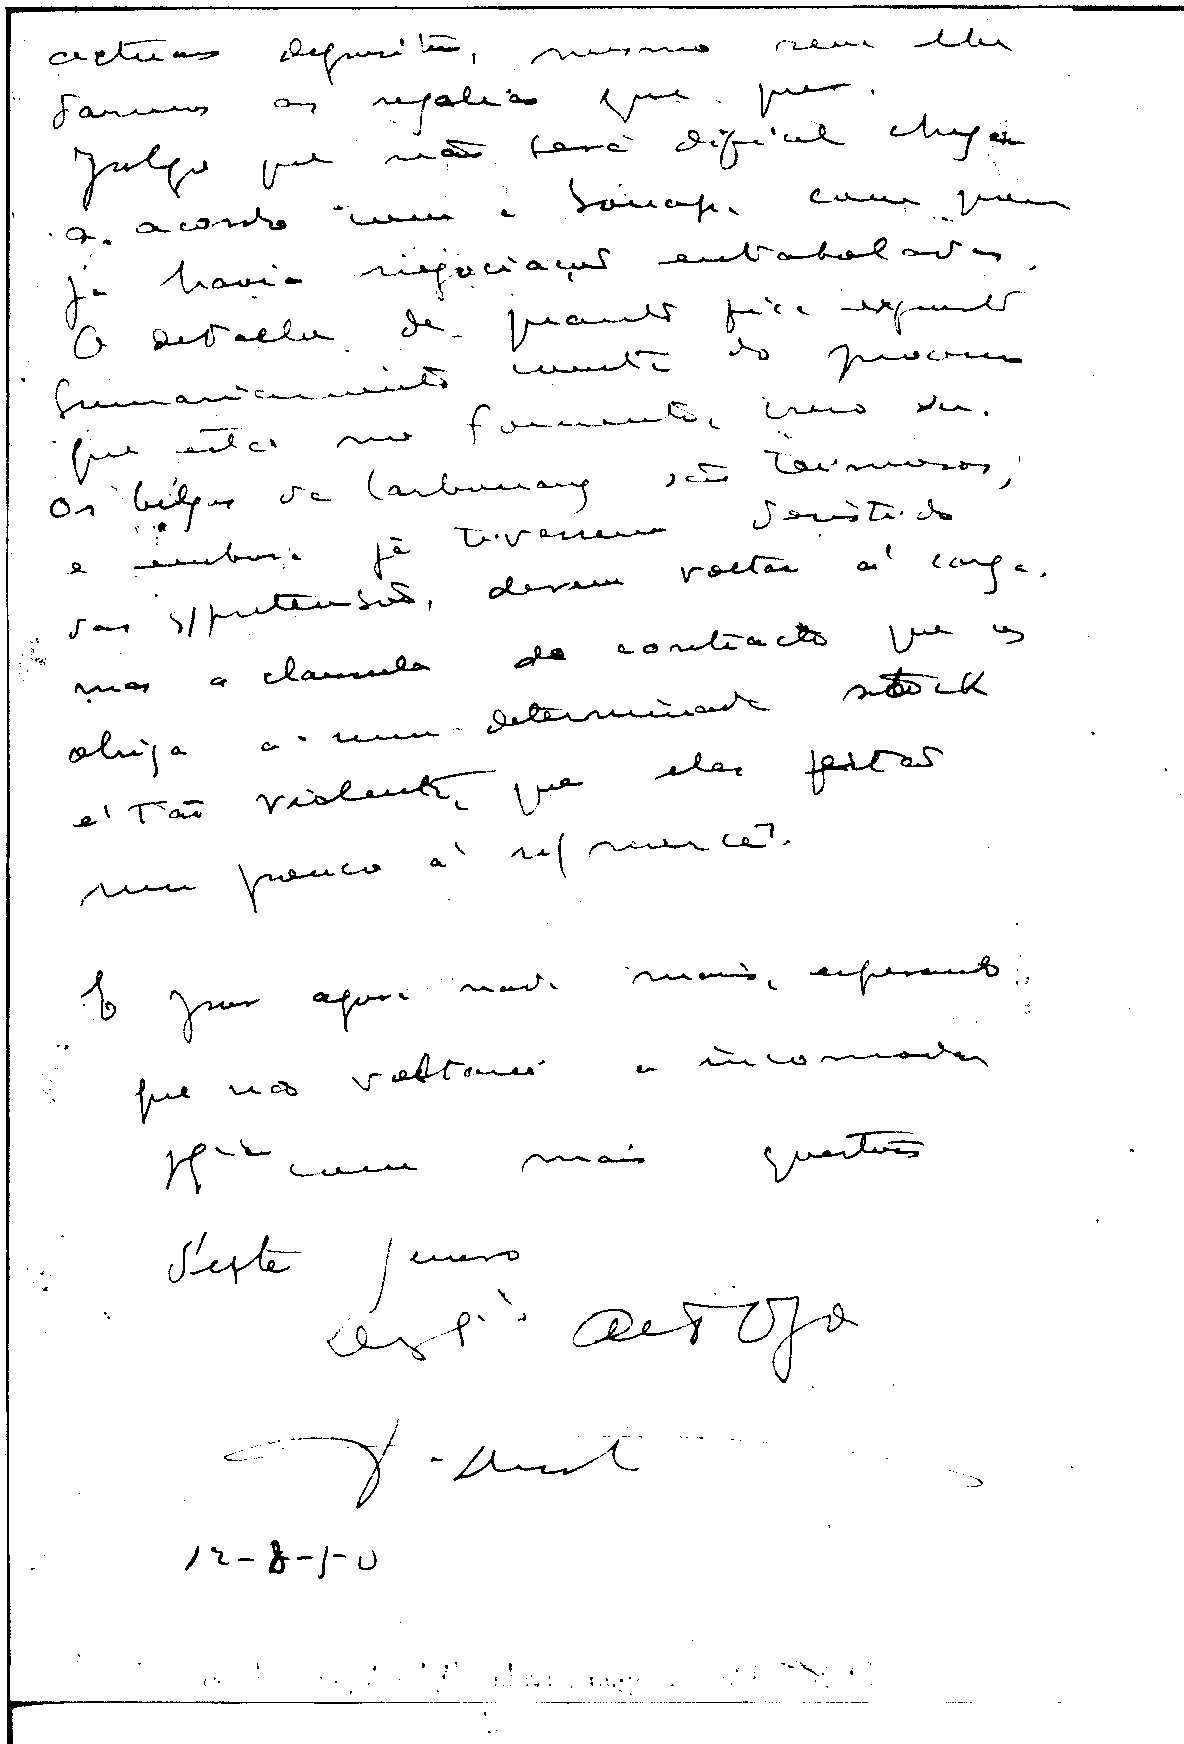 actuaes depositos, mesmo sem lhe
darmos as regalias que quer.
Julgo que não será dificil chegar
a acordo com a Sonap, com quem
já havia negociações entaboladas.
O detalhe de quanto fica exposto
sumariamente consta do processo
que está no Fomento, creio eu.
Os belgas da Carbonang são teimosos,
e embora já tivessem desistido
das s/pretensões, devem voltar á carga.
mas a clausula do contracto que os
obriga a um determinado stock
é tão violenta, que eles
um pouco á n/ mercê.
E por agora nada mais, esperando
que não voltarei a incomodar
com mais questões
d'este genero
12-8-50